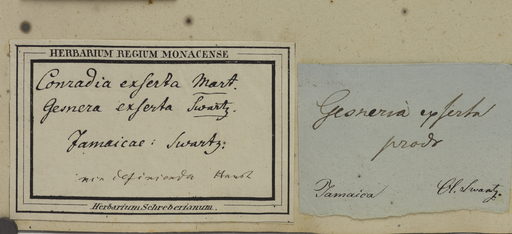 HERBARIUM REGIUM MONACENSE
Conradia exserta Mart.
Gesnera exserta Swartz.
Jamaicae: Swartz:
definienda
Herbarium Schreberianum.
Gesneria exserta
prodr
Jamaica Cl. Swartz.